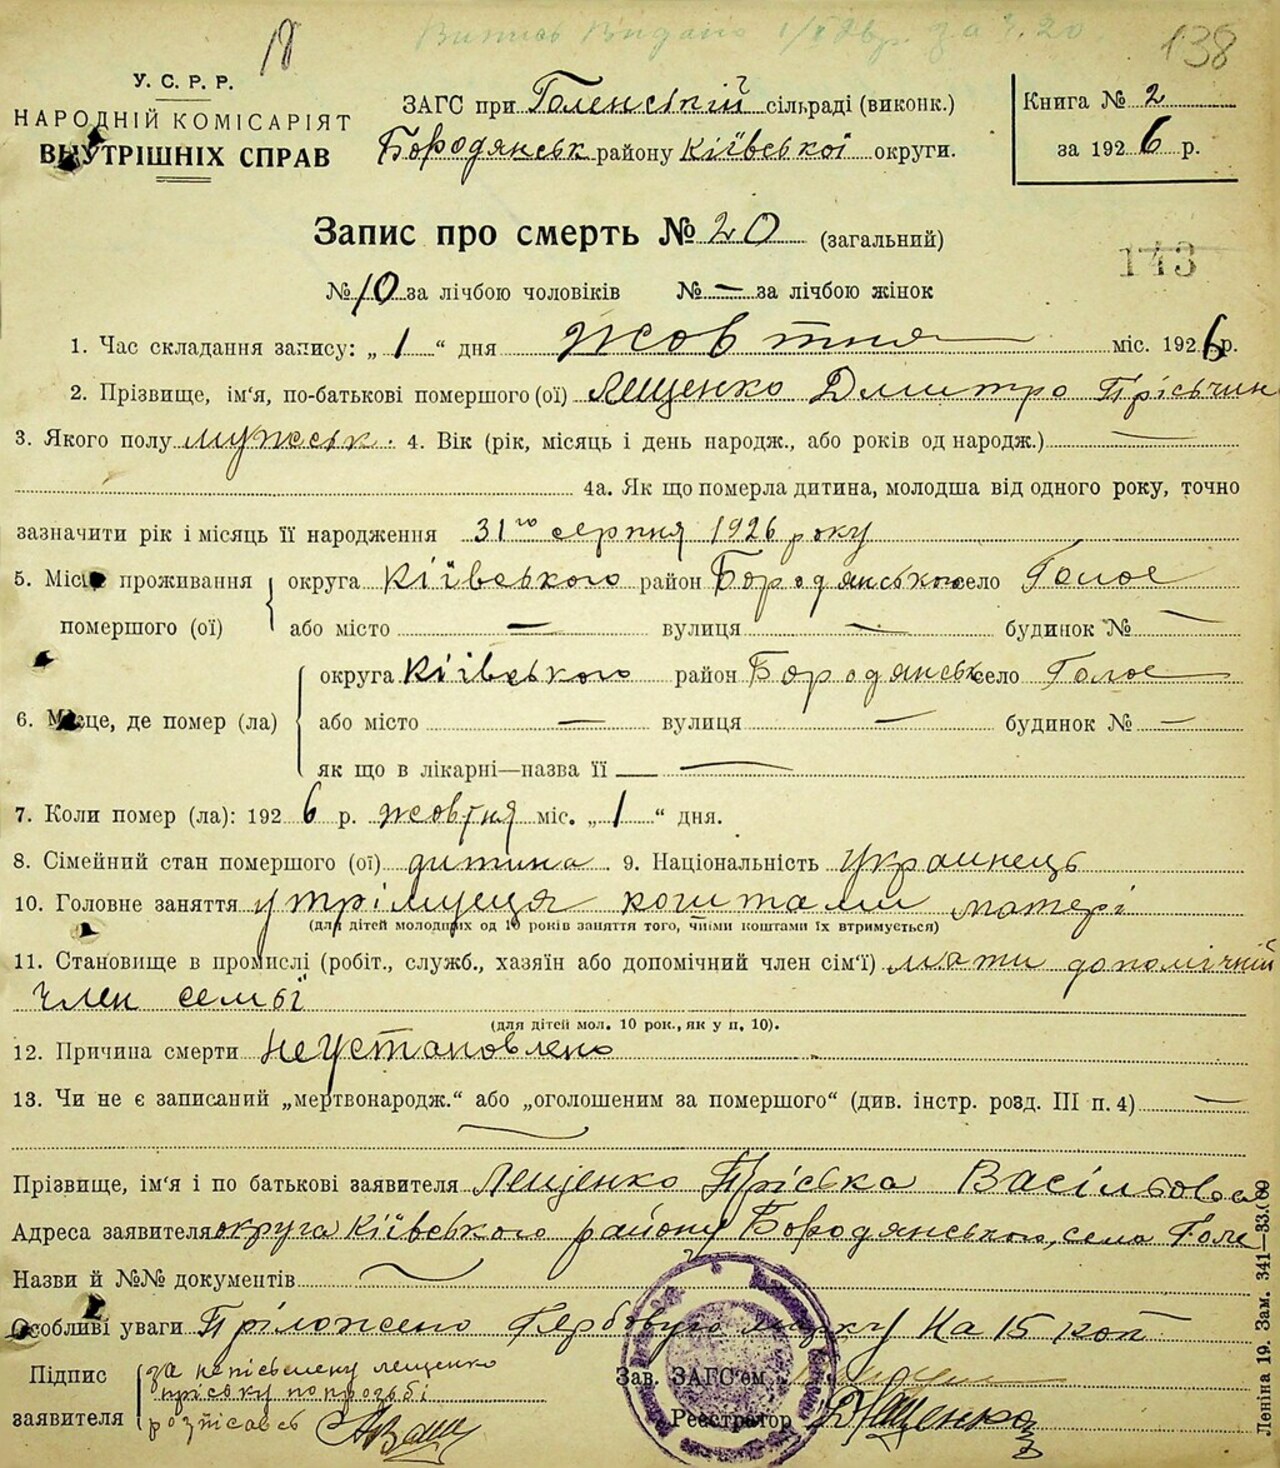 Випись Видано 1/X 26р. за ч. 20.
138
У. С. Р. Р.
НАРОДНІЙ КОМІСАРІЯТ
ВНУТРІШНІХ СПРАВ
ЗАГС при Голенській сільраді (виконк.)
Бородянськ району Київської округи.
Книга № 2
за 1926 р.
Запис про смерть № 20 (загальний)
143
№ 10 за лічбою чоловіків № — за лічбою жінок
1. Час складання запису: „ 1 “ дня жовтня міс. 1926 р.
2. Прізвище, ім'я, по-батькові помершого (ої) Лещенко Дмитро Прісьчин
3. Якого полу мужськ. 4. Вік (рік, місяць і день народж., або років од народж.) —
4а. Як що померла дитина, молодша від одного року, точно
зазначити рік і місяць її народження 31го серпня 1926 року
5. Місце проживання помершого (ої) округа Київського район Бородянського село Голое
або місто — вулиця — будинок № —
6. Місце, де помер (ла) округа Київського район Бородянськ село Голое
або місто — вулиця — будинок № —
як що в лікарні—назва її —
7. Коли помер (ла): 1926 р. жовтня міс. „ 1 “ дня.
8. Сімейний стан помершого (ої) дитина. 9. Національність украинець
10. Головне заняття утрімуеця коштами матері
(для дітей молодших од 10 років заняття того, чиїми коштами їх втримується)
11. Становище в промислі (робіт., служб., хазяїн або допомічний член сім'ї) мати допомічній
член семьї
(для дітей мол. 10 рок., як у п. 10).
12. Причина смерти неустановлено
13. Чи не є записаний „мертвонародж.“ або „оголошеним за помершого“ (див. інстр. розд. III п. 4) —
Прізвище, ім'я і по батькові заявителя Лещенко Пріська Васільовна
Адреса заявителя округа Київського району Бородянського, села Голе
Назви й №№ документів —
Особливі уваги Пріложено Гербовую марку на 15 коп
Підпис заявителя за неписьмену лещенко
пріську попрозьбі
розпісавсь
Зав. ЗАГС'ем
Реєстратор Лещенко
Леніна 19. Зам. 341—33.000